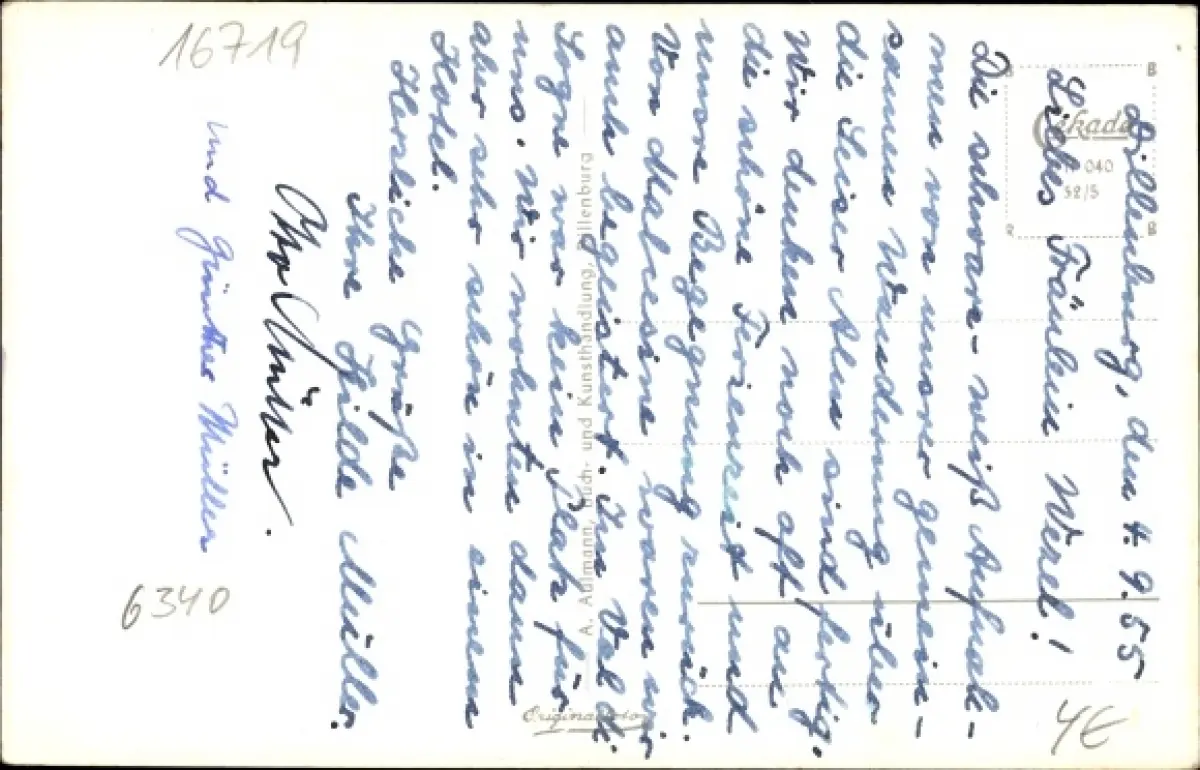 Dillenburg, den 4. 9. 55
Liebes Fräulein Wenel!
Die schwarz-weiß Aufnah-
men von unsrer gemein-
samen Wanderung über
die Seiser Alm sind fertig.
Wir denken noch oft an
die schöne Ferienzeit und
unsre Begegnung zurück.
Von Malcesine waren wir
auch begeistert. Im Val di
Sogno war kein Platz für
uns. Wir wohnten dann
aber sehr schön in einem
Hotel.
Herzliche Grüße
Ihre Hilde Müller.
Müller.
und Günther Müller
16719
6340
4€
A. Aulmann, Buch- und Kunsthandlung, Dillenburg
Originalfoto
040
52/5